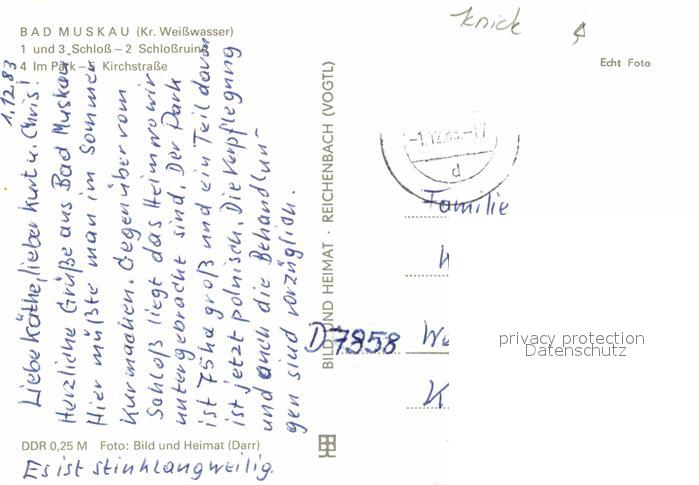 Knick
BAD MUSKAU (Kr. Weißwasser)
1 und 3 Schloß – 2 Schloßruine
4 Im Park – 5 Kirchstraße
Echt Foto
1.12.83
Liebe Käthe, lieber Kurt u. Chris!
Herzliche Grüße aus Bad Muskau.
Hier müßte man im Sommer
Kur machen. Gegenüber vom
Schloß liegt das Heim wo wir
untergebracht sind. Der Park
ist 75 ha groß und ein Teil davon
ist jetzt polnisch. Die Verpflegung
und auch die Behandlun-
gen sind vorzüglich.
Es ist stinklangweilig.
DDR 0,25 M Foto: Bild und Heimat (Darr)
BILD UND HEIMAT · REICHENBACH (VOGTL)
-1.12.83-17
d
Familie
D7858
privacy protection
Datenschutz